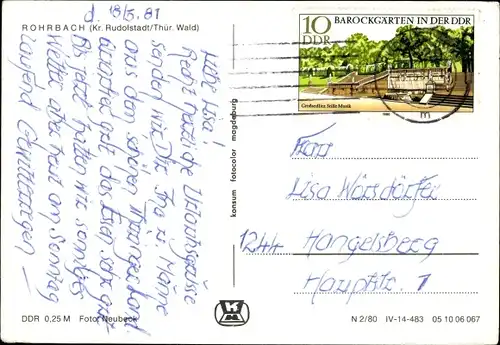 ROHRBACH (Kr. Rudolstadt/Thür. Wald)
d. 18/5. 81
Liebe Lisa!
Recht herzliche Urlaubsgrüsse
senden wir Dir. Ina u. Männe
aus dem schönen Thüringer Land.
Quartier gut, das Essen sehr gut
Bis jetzt hatten wir sonniges
Wetter aber heut am Sonntag
laufend Gewitterregen –
konsum fotocolor magdeburg
10
DDR
BAROCKGÄRTEN IN DER DDR
Großsedlitz, Stille Musik
m
Frau
Lisa Wörsdörfer
1244 Hangelsberg
Hauptstr. 1
DDR 0,25 M Foto: Neubeck
N 2/80 IV-14-483 05 10 06 067